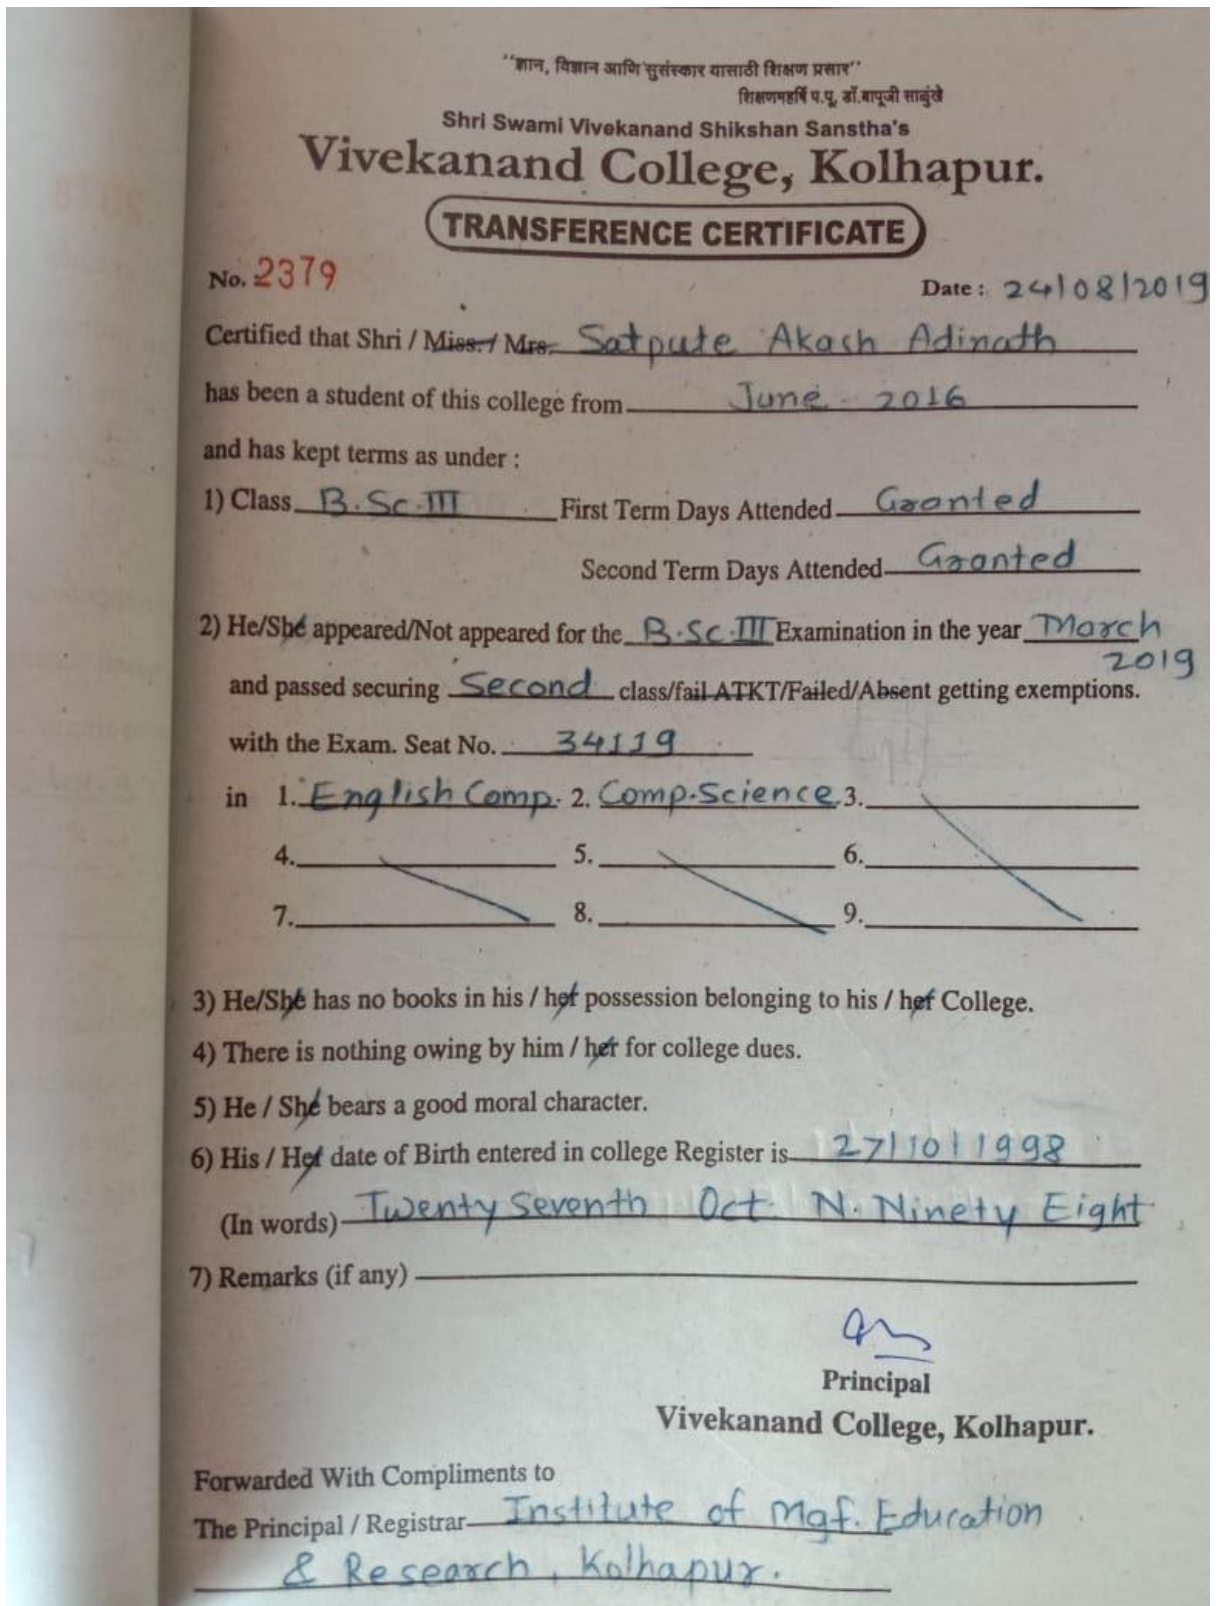 "ज्ञान, विज्ञान आणि सुसंस्कार यासाठी शिक्षण प्रसार"
शिक्षणमहर्षि प.पू. डॉ.बापूजी साळुंखे
Shri Swami Vivekanand Shikshan Sanstha's
Vivekanand College, Kolhapur.
TRANSFERENCE CERTIFICATE
No. 2379
Date : 24/08/2019
Certified that Shri / Miss. / Mrs. Satpute Akash Adinath
has been a student of this college from June - 2016
and has kept terms as under :
1) Class B.Sc.III First Term Days Attended Granted
Second Term Days Attended Granted
2) He/She appeared/Not appeared for the B.Sc.III Examination in the year March
2019
and passed securing Second class/fail ATKT/Failed/Absent getting exemptions.
with the Exam. Seat No. 34119
in 1. English Comp. 2. Comp.Science 3.
4. 5. 6.
7. 8. 9.
3) He/She has no books in his / her possession belonging to his / her College.
4) There is nothing owing by him / her for college dues.
5) He / She bears a good moral character.
6) His / Her date of Birth entered in college Register is 27/10/1998
(In words) Twenty Seventh Oct. N. Ninety Eight
7) Remarks (if any)
Principal
Vivekanand College, Kolhapur.
Forwarded With Compliments to
The Principal / Registrar Institute of Mgf. Education
& Research, Kolhapur.